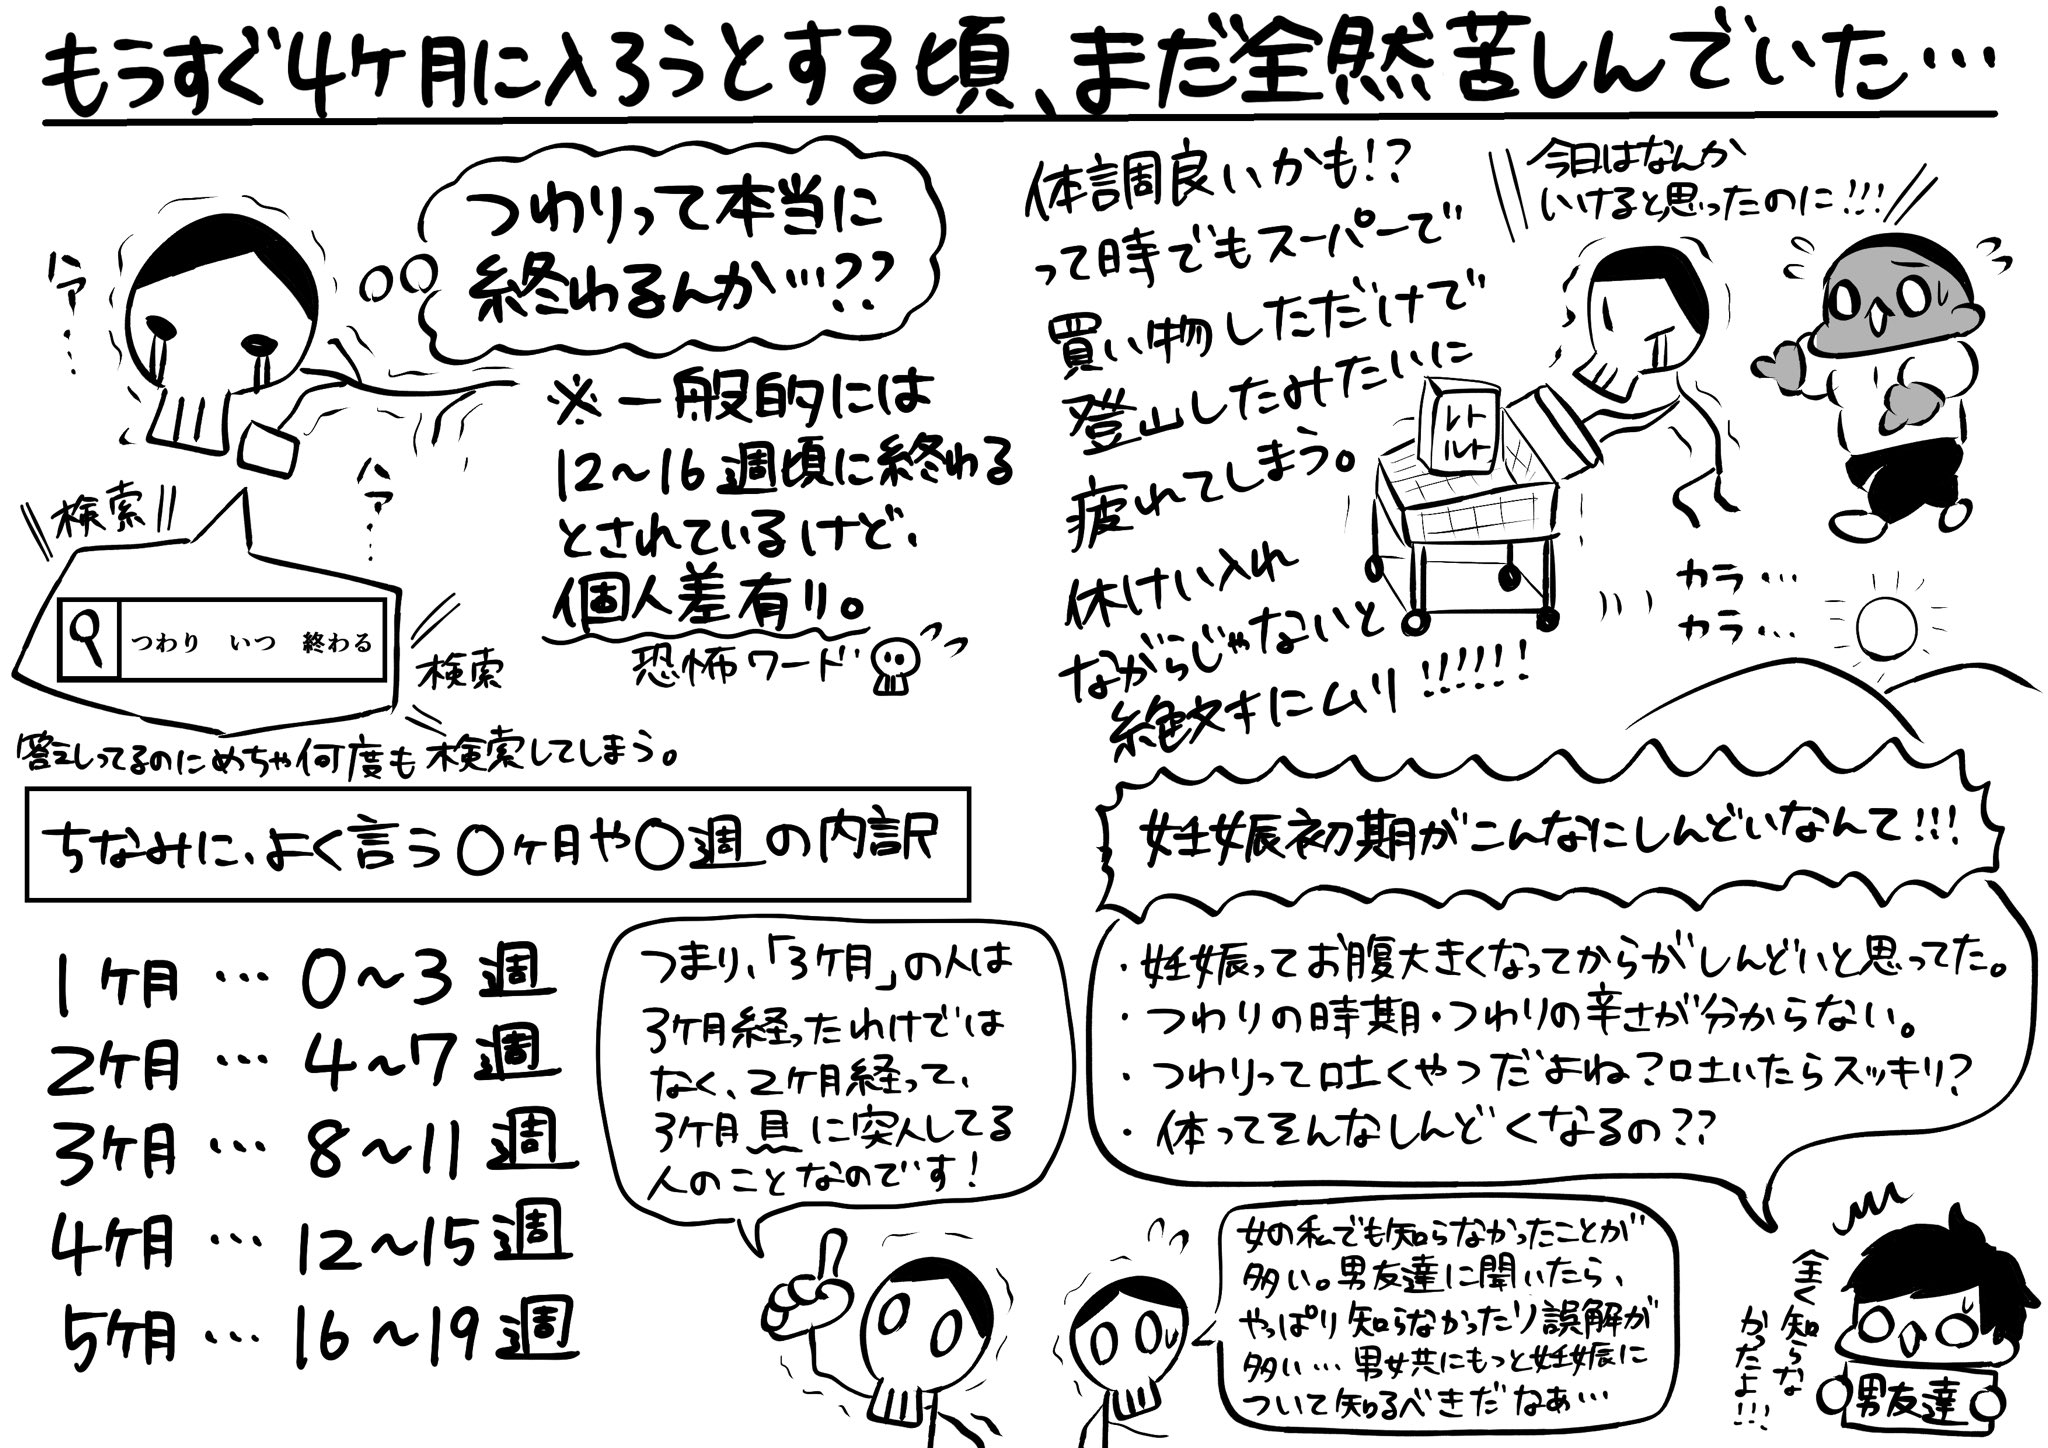 もうすぐ4ヶ月に入ろうとする頃、まだ全然苦しんでいた…
つわりって本当に
終わるんか…??
ハァ…
ハァ…
※一般的には
12〜16週頃に終わる
とされているけど、
個人差有り。
恐怖ワード
検索
つわり　いつ　終わる
検索
答えしってるのにめちゃ何度も検索してしまう。
体調良いかも!?
って時でもスーパーで
買い物しただけで
登山したみたいに
疲れてしまう。
休けい入れ
ながらじゃないと
絶対にムリ!!!!!!
今日はなんか
いけると思ったのに!!!
レト
ルト
カラ…
カラ…
ちなみに、よく言う〇ヶ月や〇週の内訳
1ヶ月…0〜3週
2ヶ月…4〜7週
3ヶ月…8〜11週
4ヶ月…12〜15週
5ヶ月…16〜19週
つまり、「3ヶ月」の人は
3ヶ月経ったわけでは
なく、2ヶ月経って、
3ヶ月目に突入してる
人のことなのです!
妊娠初期がこんなにしんどいなんて!!!
・妊娠ってお腹大きくなってからがしんどいと思ってた。
・つわりの時期・つわりの辛さが分からない。
・つわりって吐くやつだよね?吐いたらスッキリ?
・体ってそんなしんどくなるの??
女の私でも知らなかったことが
多い。男友達に聞いたら、
やっぱり知らなかったり誤解が
多い…男女共にもっと妊娠に
ついて知るべきだなぁ…
全く知らな
かったよ!!!
男友達